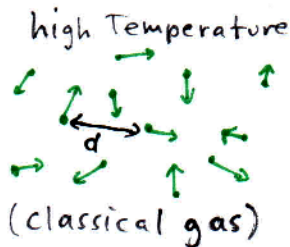 high Temperature
d
(classical gas)